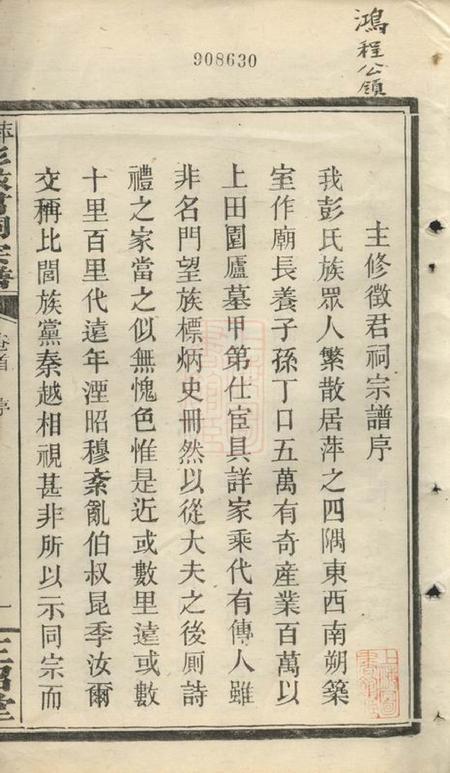 908630
鴻程公領
主修徵君祠宗譜序
我彭氏族眾人繁散居萍之四隅東西南朔築
室作廟長養子孫丁口五萬有奇產業百萬以
上田園廬墓甲第仕宦具詳家乘代有傳人雖
非名門望族標炳史冊然以從大夫之後厠詩
禮之家當之似無愧色惟是近或數里遠或數
十里百里代遠年湮昭穆紊亂伯叔昆季汝爾
交稱比閭族黨秦越相視甚非所以示同宗而
卷首
序
一